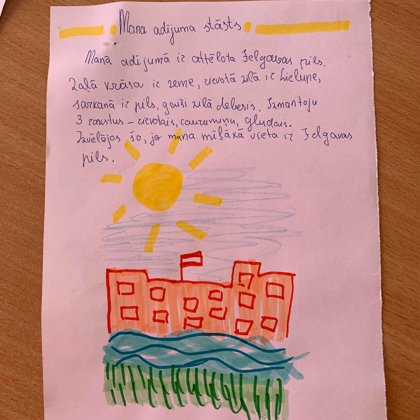 Mana adījuma stāsts
Manā adījumā ir attēlota Jelgavas pils.
Zaļā krāsa ir zeme, rievotā zilā ir Lielupe,
sarkanā ir pils, gaiši zilā debesis. Izmantoju
3 rakstus – rievotais, caurumiņu, gludais.
Izvēlējos šo, jo mana mīļākā vieta ir Jelgavas
pils.